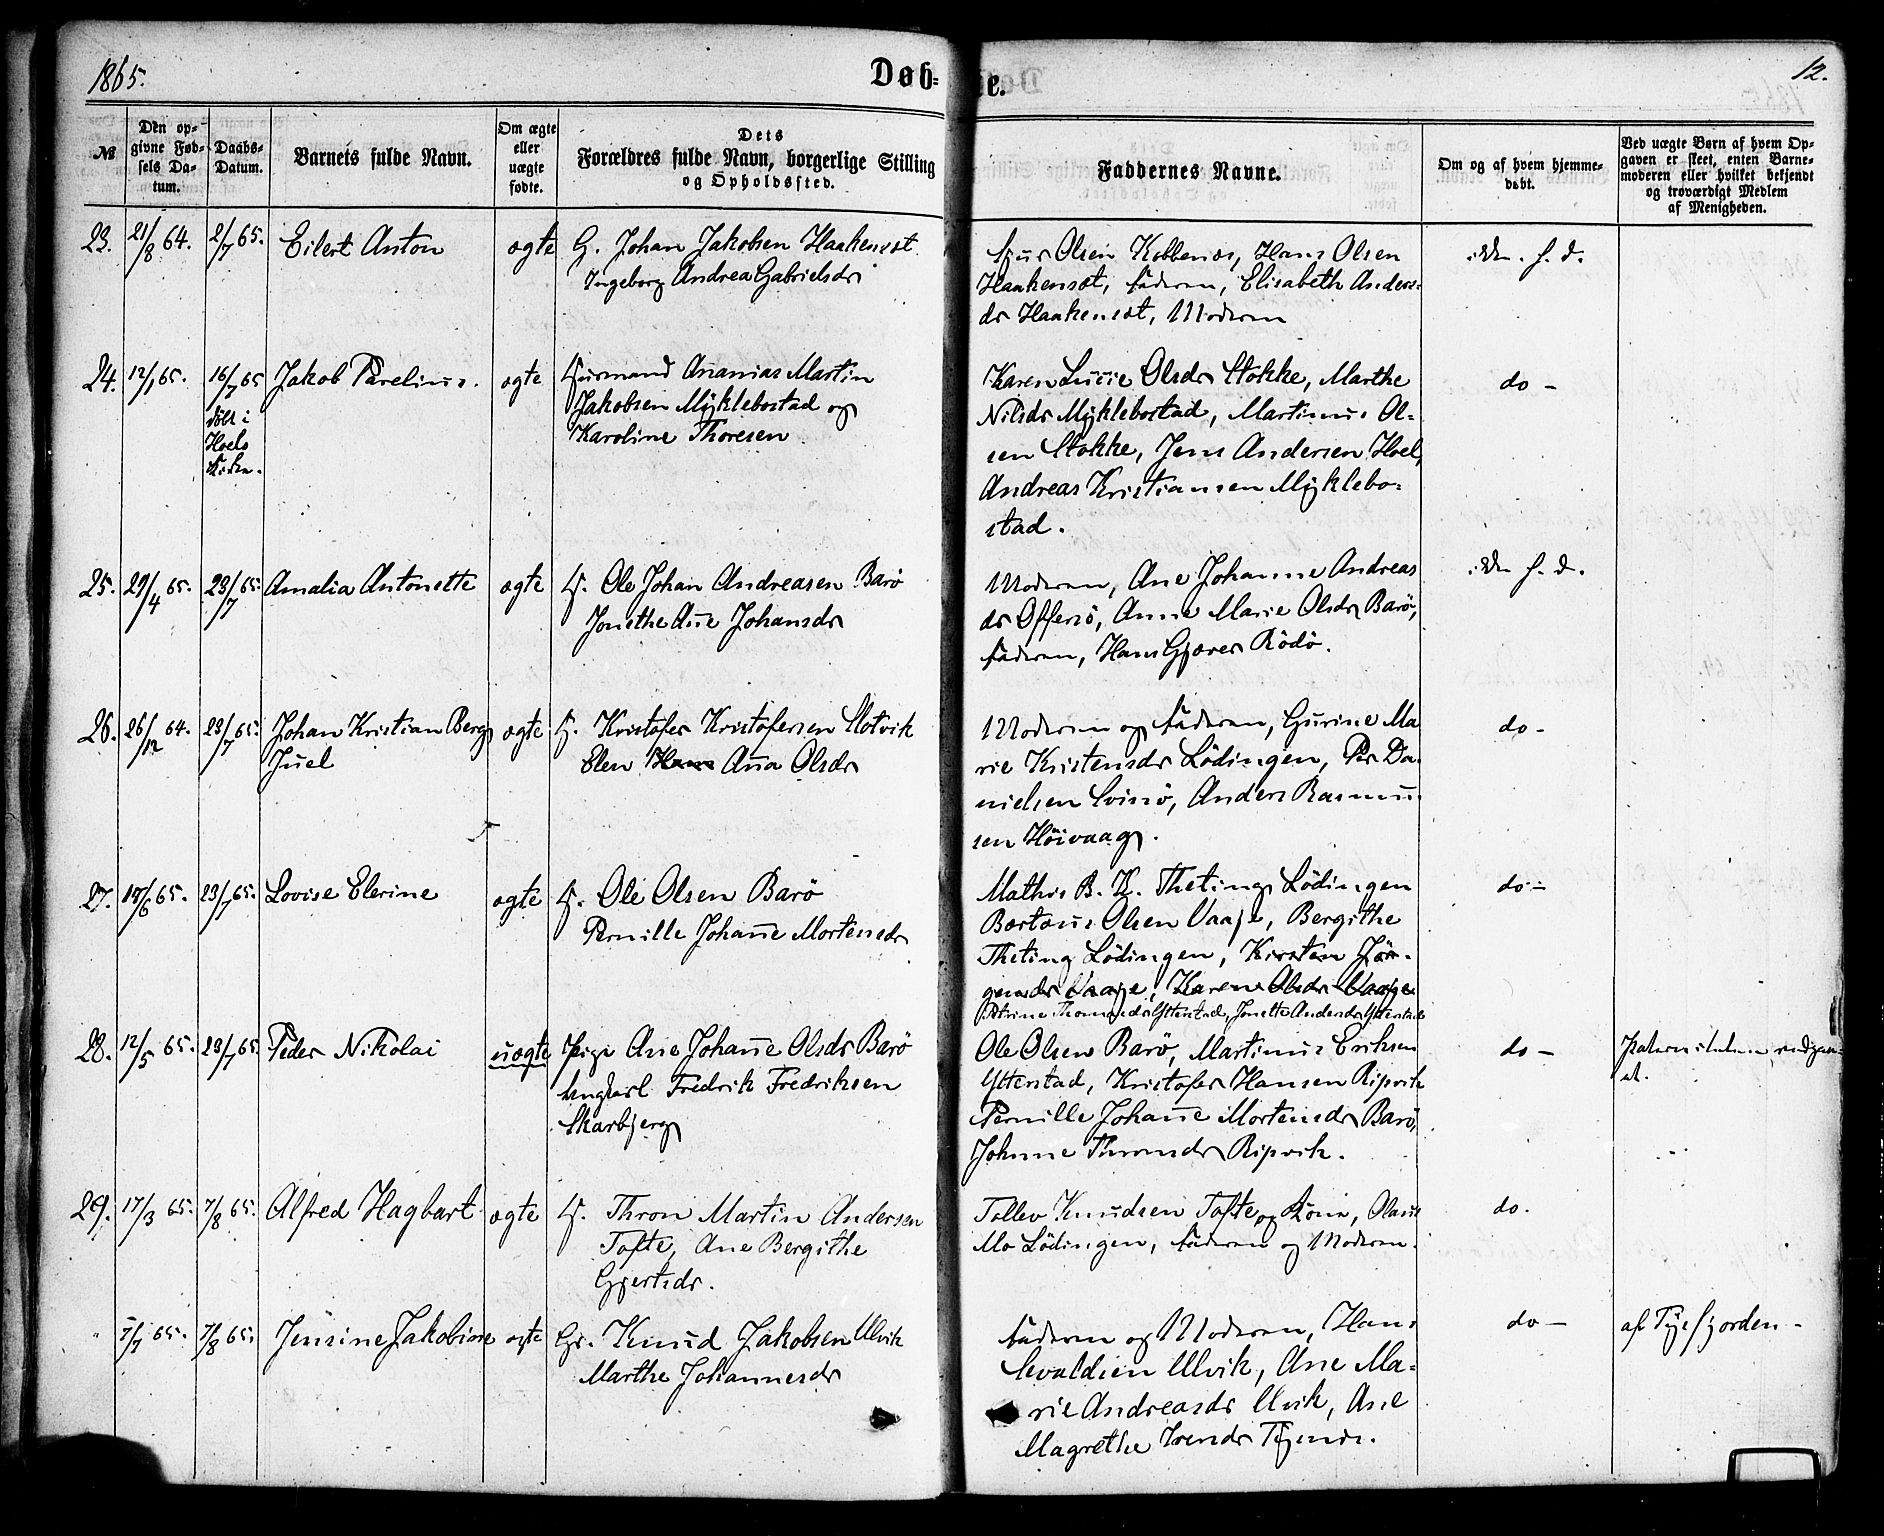 1865.
Døb=
te.
12.
№
Den op=
givne Fød=
sels Da=
tum.
Daabs=
Datum.
Barnets fulde Navn.
Om ægte
eller
uægte
fødte.
Dets
Forældres fulde Navn, borgerlige Stilling
og Opholdssted.
Faddernes Navne.
Om og af hvem hjemme=
døbt.
Ved uægte Børn af hvem Op=
gaven er skeet, enten Barne=
moderen eller hvilket bekjendt
og troværdigt Medlem
af Menigheden.
23.
21/8 64.
2/7 65.
Eilert Anton
ægte
G. Johan Jakobsen Haakenset
Ingeborg Andrea Gabrielsdr
Olsen Kobbenes, Hans Olsen
Haakenset, Faderen, Elisabeth Anders=
dr Haakenset, Moderen
ikke h. d.
24.
12/1 65.
16/7 65
døbt i
Hoels
Kirke.
Jakob Parelius.
ægte
Huusmand Ananias Martin
Jakobsen Myklebostad og
Karoline Thoresen
Karen Lucie Olsdr Stokke, Marthe
Nilsdr Myklebostad, Martinus Ol=
sen Stokke, Jens Andersen Hoel,
Andreas Kristiansen Myklebo=
stad.
do -
25.
29/4 65.
23/7 65.
Amalia Antonette
ægte
H. Ole Johan Andreasen Barø
Jonethe Ane Johansdr
Moderen, Ane Johanne Andreas
dr Offersø, Anne Marie Olsdr Barø,
Faderen, Hans Gjæver Rødø.
ikke h. d.
26.
26/12 64.
23/7 65.
Johan Kristian Berg
Juel
ægte
H. Kristofer Kristofersen Slotvik
Elen Hans Ana Olsdr
Moderen og Faderen, Gurine Ma
rie Kristensdr Lødingen, Per Da=
nielsen Svinø, Anders Rasmus
sen Höivaag.
do -
27.
18/6 65.
23/7 65.
Lovise Elerine
ægte
H. Ole Olsen Barø
Pernille Johane Mortensdr
Mathis B. K. Theting Lødingen
Berteus Olsen Vaaje, Bergithe
Theting Lødingen, Kirsten Jör=
gensdr Vaaje, Karen Olsdr Vaaje
Petrine Thomasdr Ytterstad, Jonette Andersdr Ytterstad
do -
28.
12/5 65.
23/7 65.
Peder Nikolai
uægte
Pige Ane Johane Olsdr Barø
Ungkarl Fredrik Fredriksen
Skarbjerg
Ole Olsen Barø, Martinus Eriksen
Ytterstad, Kristofer Hansen Ripvik
Pernille Johane Mortensdr Barø,
Johanne Thronsdr Ripvik.
do -
29.
17/3 65.
7/8 65.
Alfred Hagbart
ægte
H. Thron Martin Andersen
Tofte, Ane Bergithe
Gjertsdr.
Tollev Knudsen Tofte og Kone, Olaus
Mo Lødingen, Faderen og Moderen.
do.
5/7 65.
7/8 65.
Jensine Jakobine
ægte
Gr. Knud Jakobsen Ulvik
Marthe Johannesdr
Faderen og Moderen, Hans
Sivaldsen Ulvik, Ane Ma=
rie Andreasdr Ulvik, Ane
Magrethe
do -
af Tysfjorden -